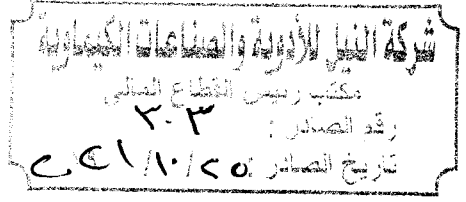 شركة النيل للأدوية والصناعات الكيماوية
مكتب رئيس القطاع المالى
رقم الصادر : ٣٠٣
تاريخ الصادر : ٢٥/١٠/